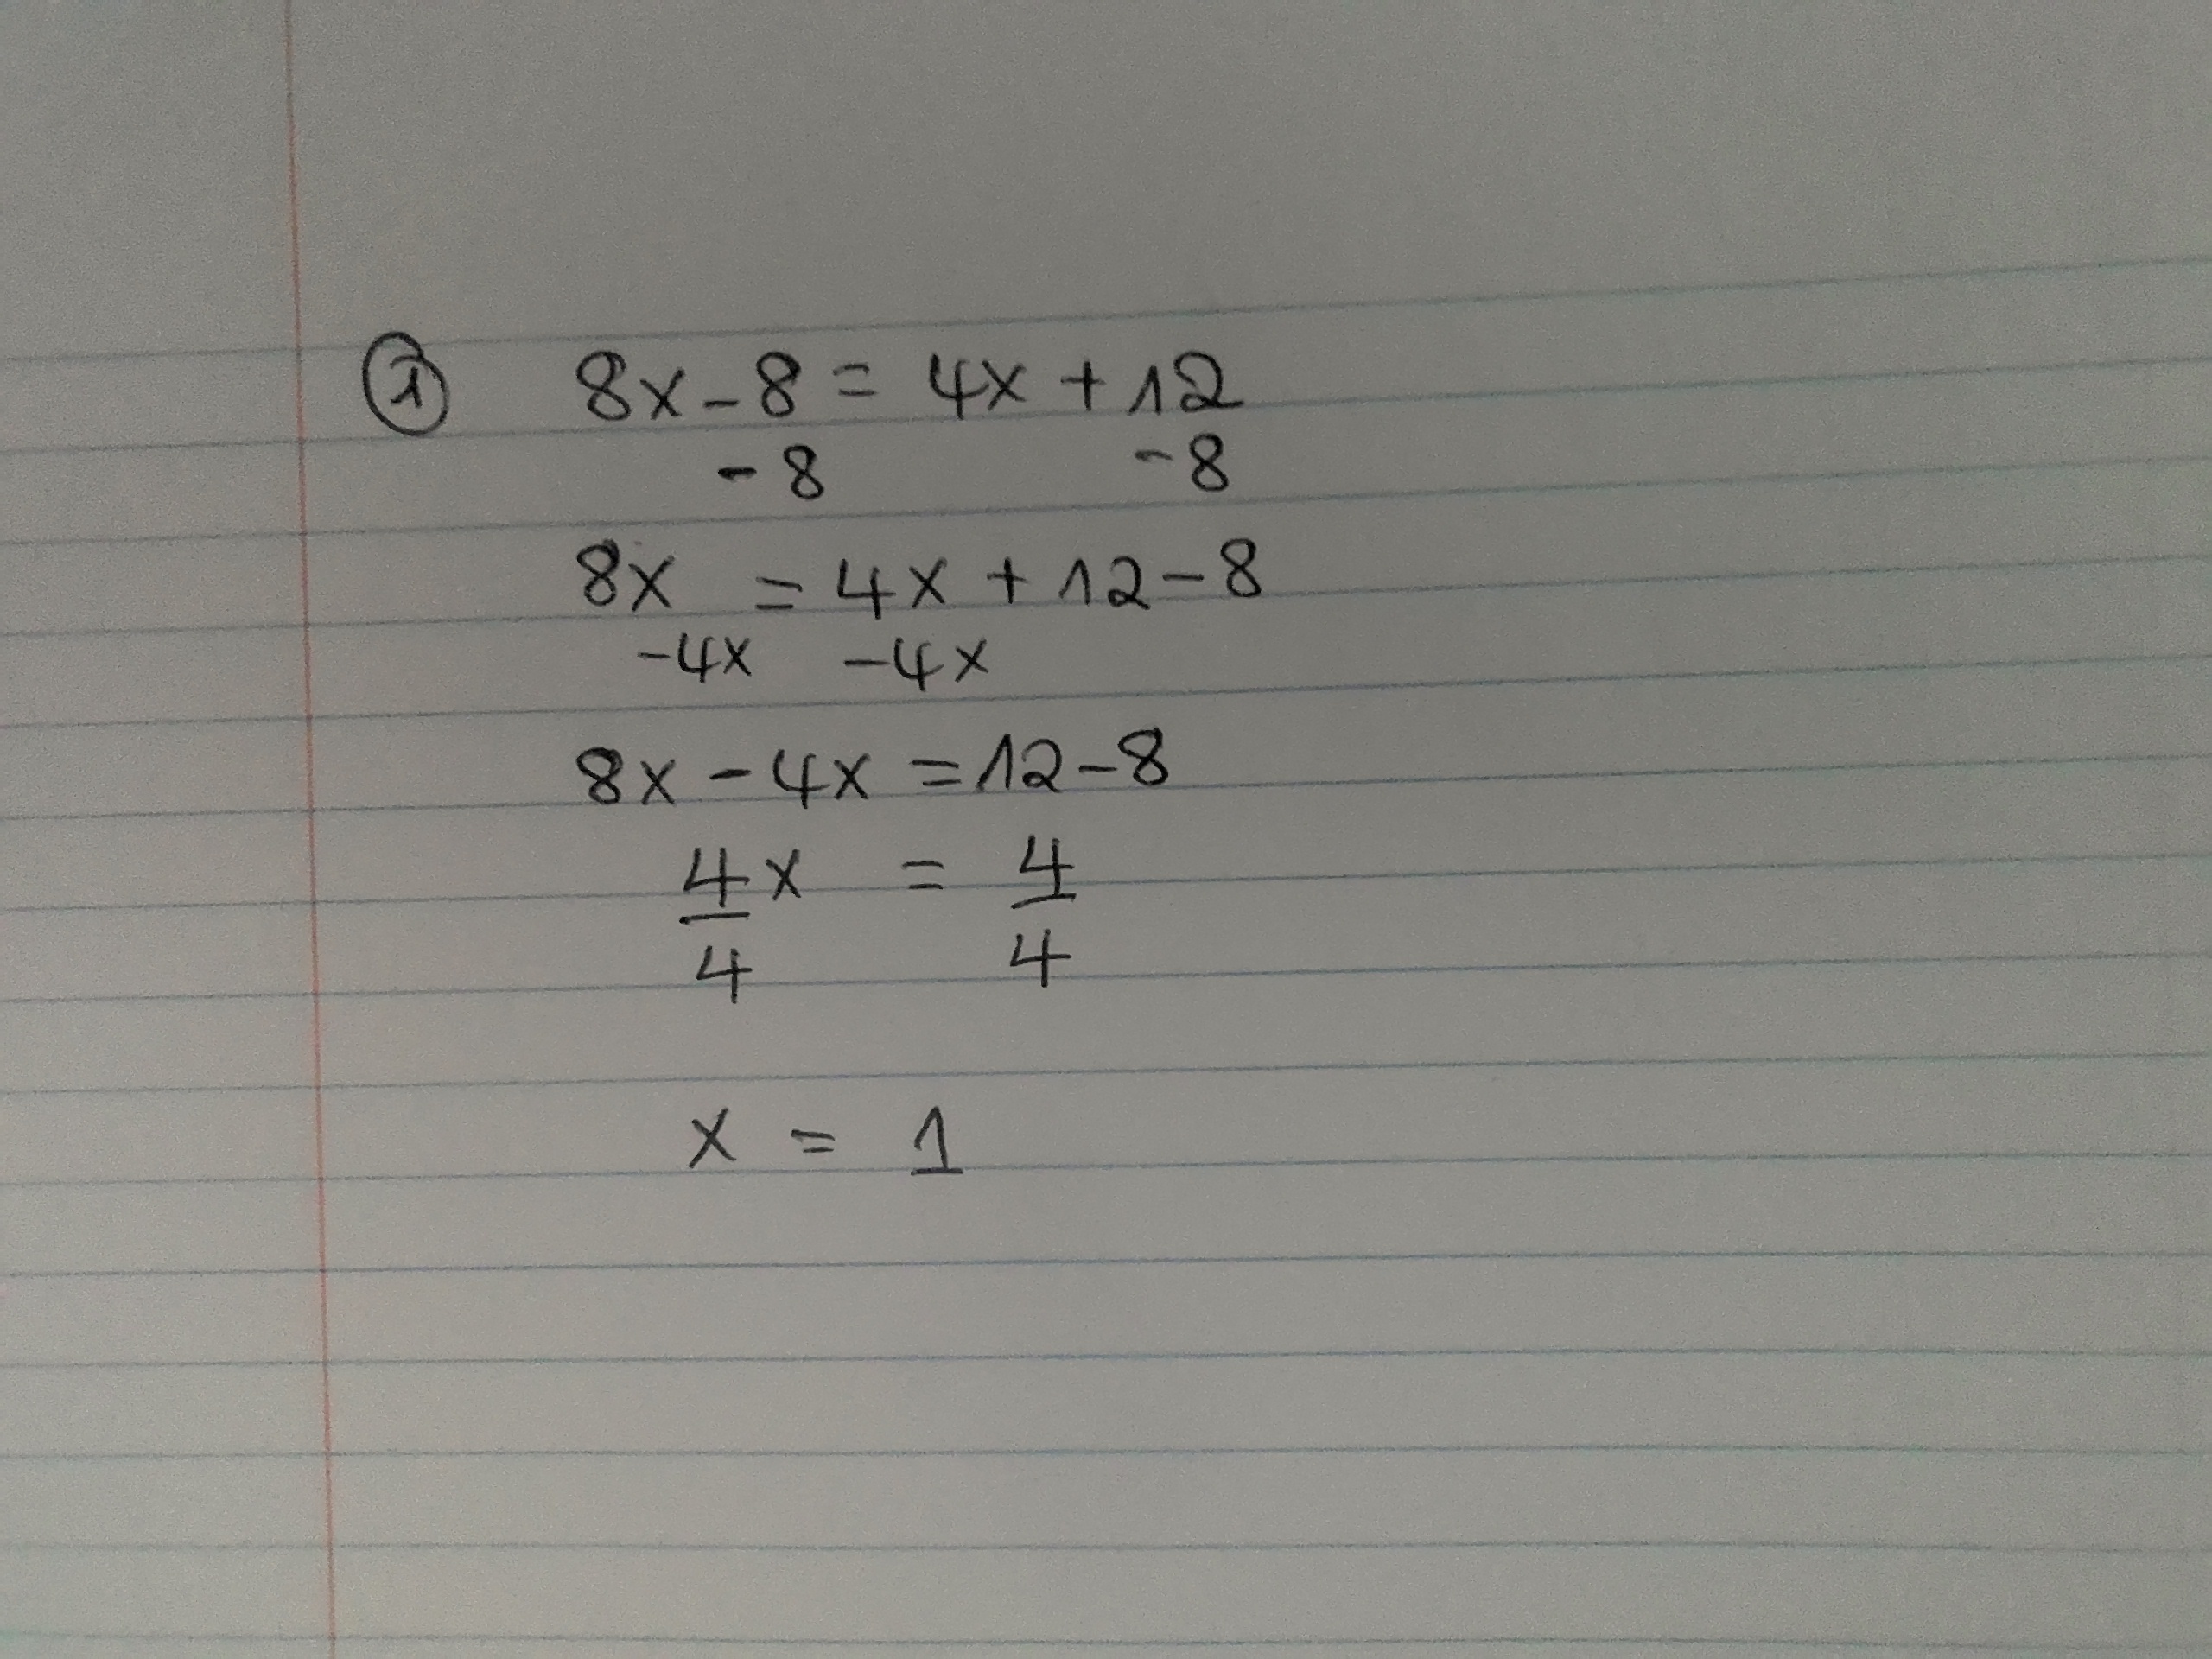 ① 8x - 8 = 4x + 12
- 8 - 8
8x = 4x + 12 - 8
- 4x - 4x
8x - 4x = 12 - 8
4x = 4
4 4
x = 1